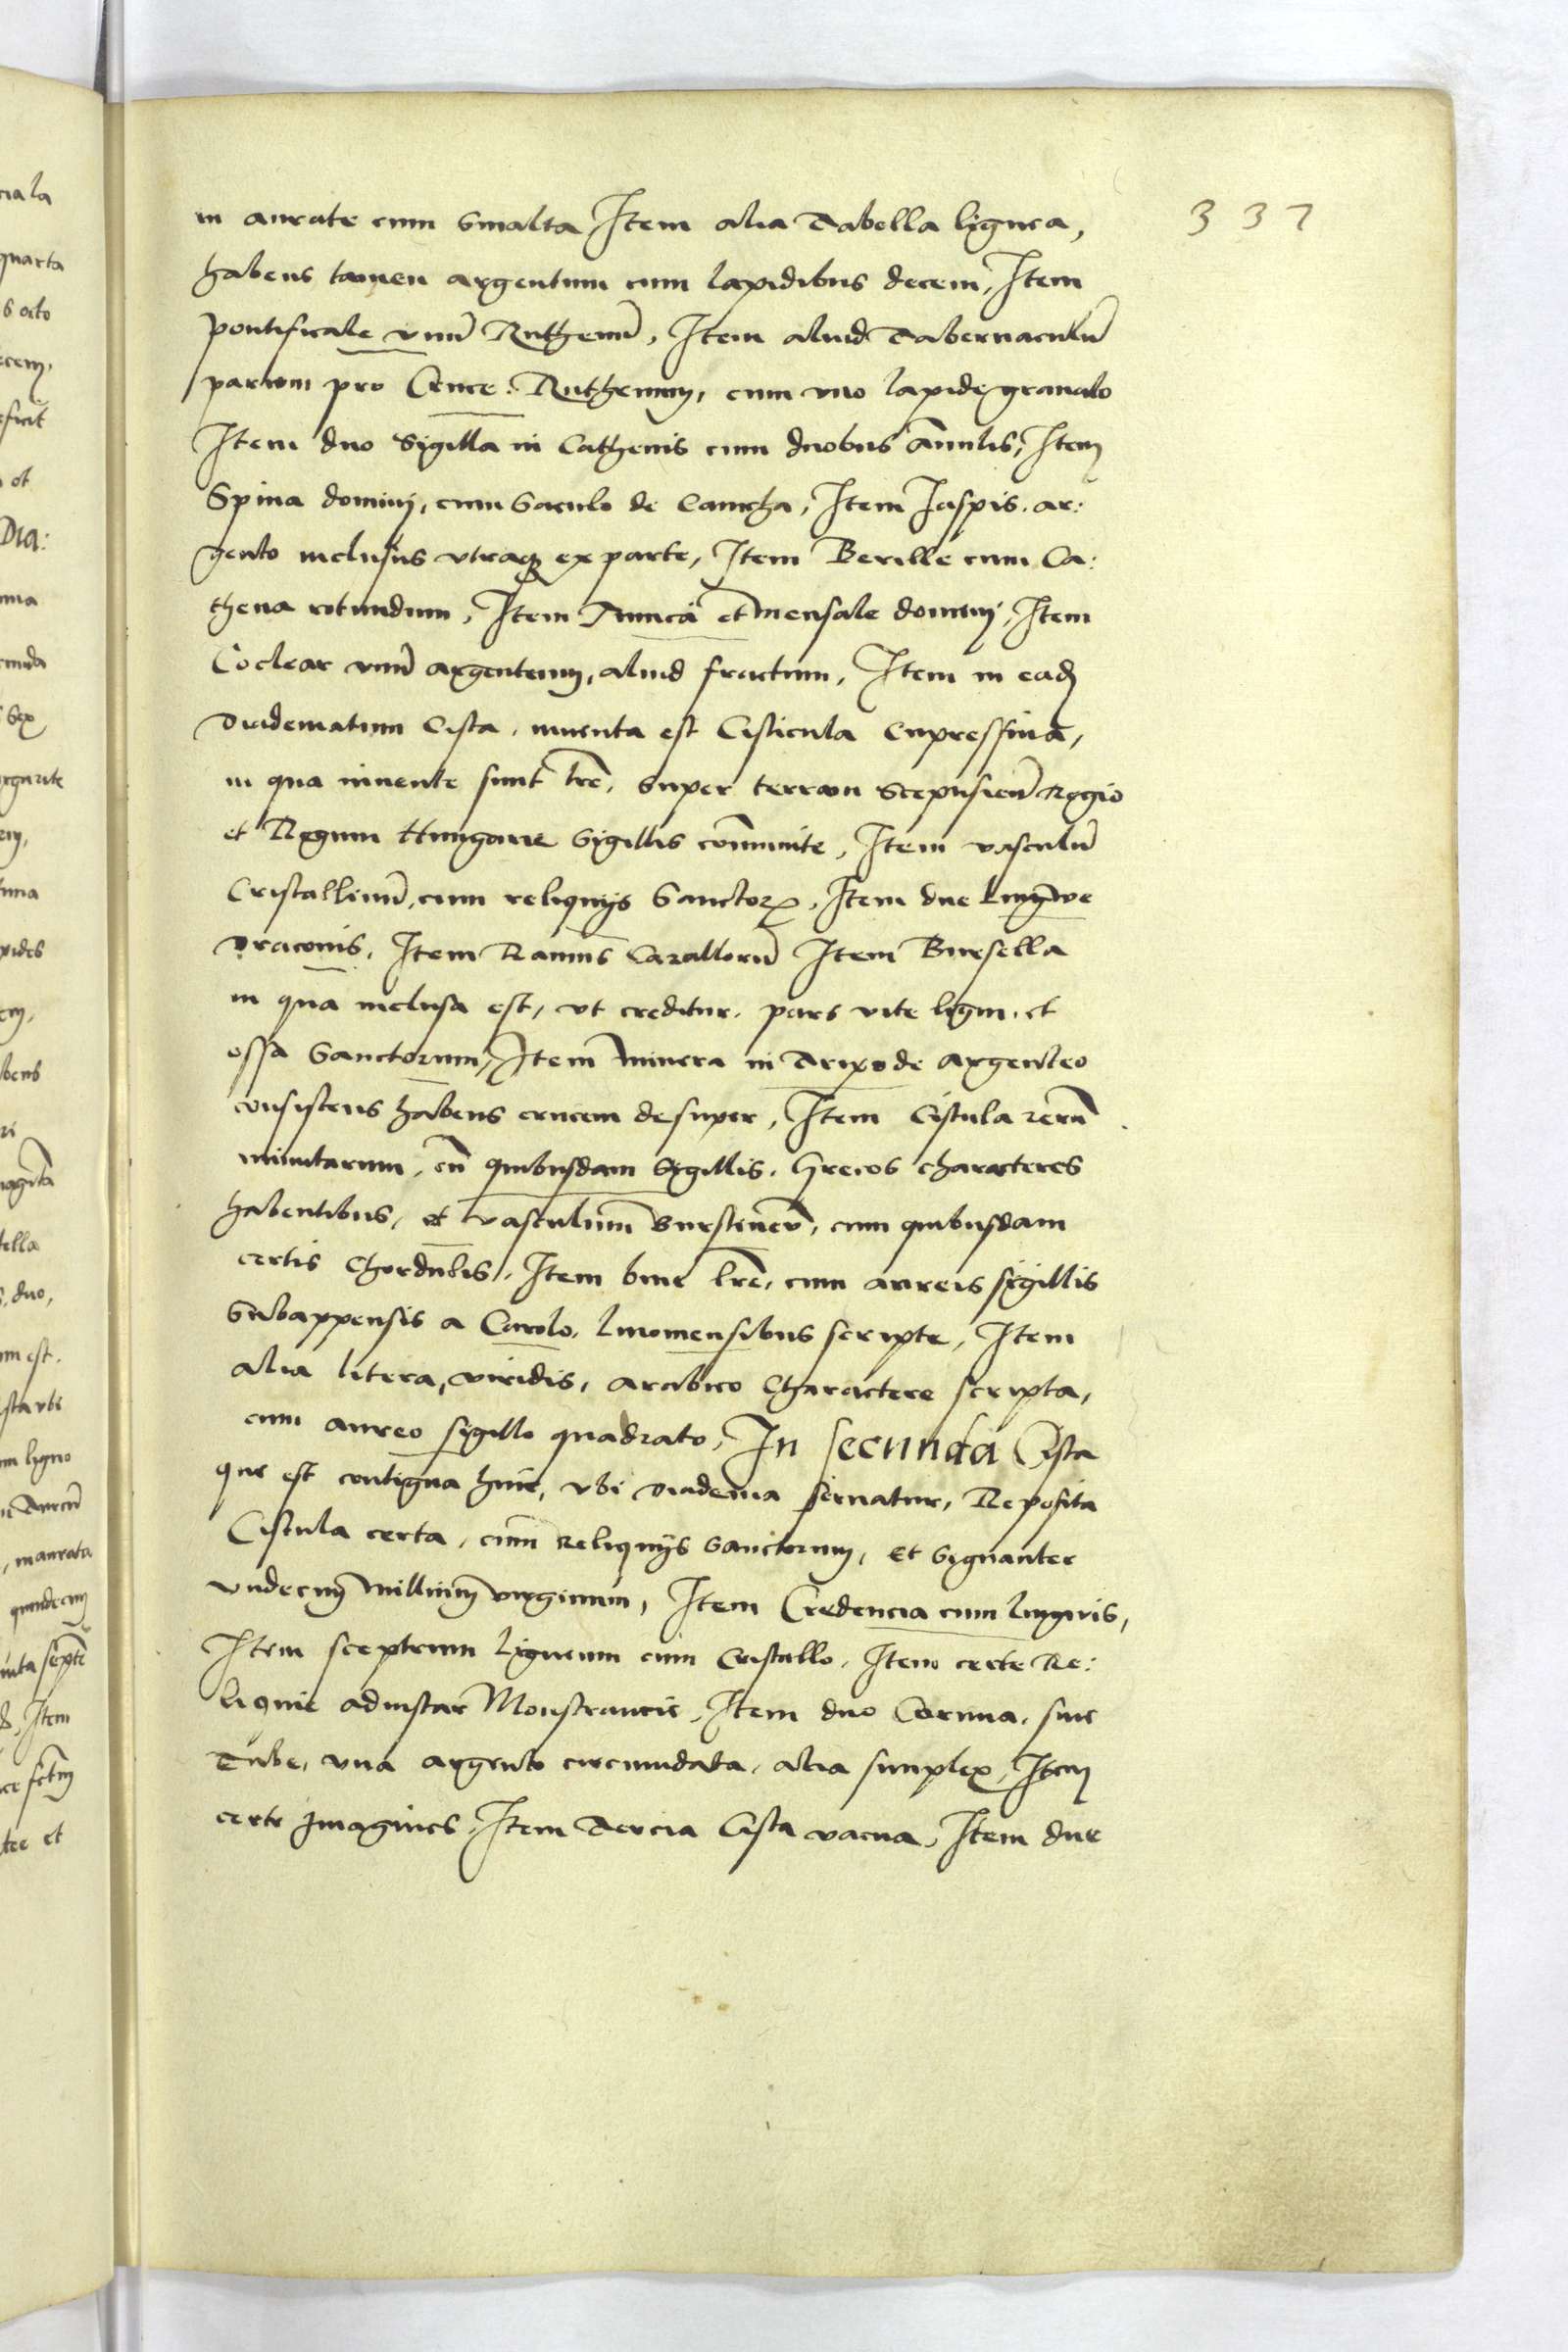 337
in aurate cum Smalta Item alia Tabella lignea,
habens tamen argentum cum lapidibus decem, Item
pontificale vnū Ruthenū, Item aliud Tabernaculū
paruum pro Cruce: Ruthenum, cum vno lapide granato
Item duo Sigilla in Cathenis cum duobus Annulis, Item
Spina domini, cum Saculo de Camcha, Item Jaspis. ar:
gento inclusus vtraqꝫ ex parte, Item Berille cum Ca:
thena rotundum, Item Tunica et mensale domini, Item
Coclear vnū argenteum, aliud fractum, Item in eadē
diadematum Cista, inuenta est Cisticula Cupressina,
in qua inuente sunt lrē, super terram Scepusienē Regio
et Regum Hungarie Sigillis communite, Item vasculū
Cristallinū, cum reliquijs Sanctorꝝ, Item due Lingwe
draconis, Item Ramus Corallorū Item Bursella
in qua inclusa est, vt creditur, pars vite ligni, et
ossa Sanctorum, Item minera in Tripode argenteo
consistens habens crucem desuper, Item Cistula rerū
minutarum, cū quibusdam Sigillis, Grecos characteres
habentibus, et vasculum Bursteneū, cum quibusdam
certis Chordulis, Item bine lrē, cum aureis sigillis
Subappensis a Carolo, Lmomensibus scripte, Item
alia litera, viridis, arabico Charactere scripta,
cum aureo sigillo quadrato, In secunda Cista
que est contigua huic, vbi diadema seruatur, Reposita
Cistula certa, cum Reliquijs Sanctorum, et Signanter
vndecim millium virginum, Item Credencia cum linguis,
Item sceptrum ligneum cum Cristallo, Item certe Re:
liquie adinstar Monstrancie, Item duo Cornua, siue
Tube, vna argento circumdata, alia simplex, Item
certe Imagines, Item Tercia Cista vacua, Item due